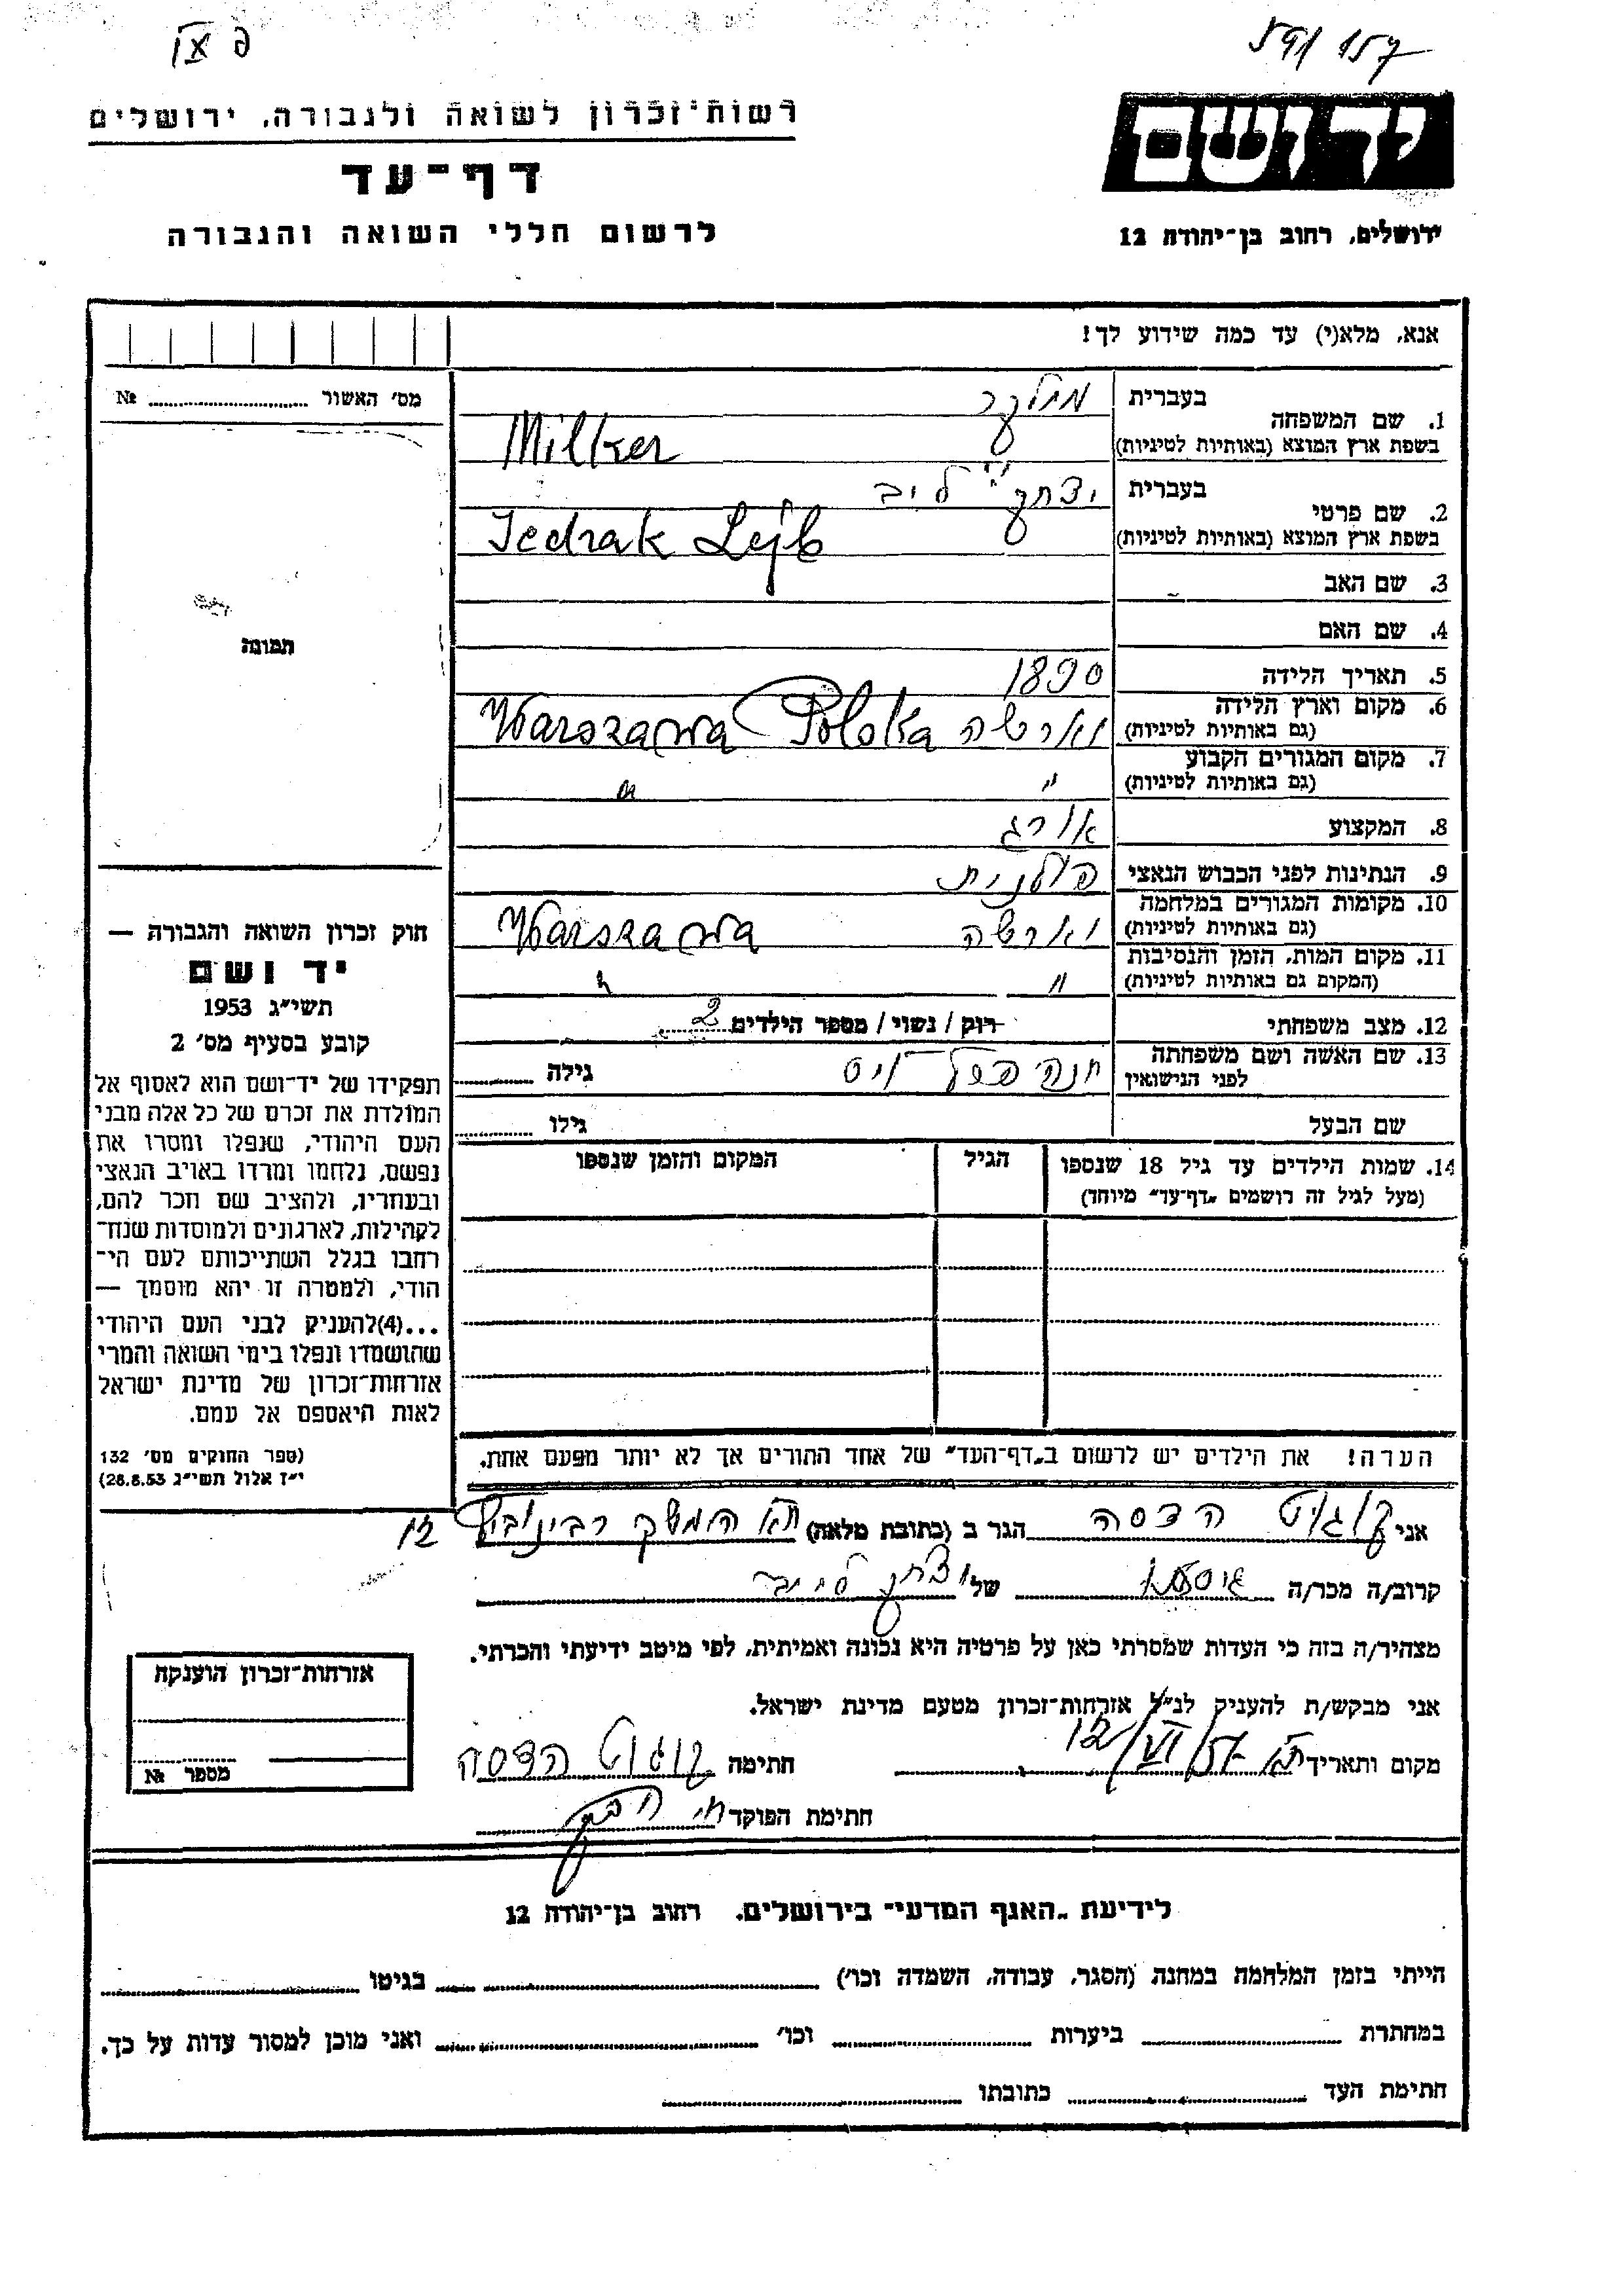 רשות־זכרון לשואה ולגבורה, ירושלים
דף־עד
לרשום חללי השואה והגבורה
ידושם
ירושלים, רחוב בן־יהודה 12
אנא, מלא(י) עד כמה שידוע לך!
מס׳ האשור № 
1. שם המשפחה בעברית מילקר
בשפת ארץ המוצא (באותיות לטיניות) Milker
2. שם פרטי בעברית יצחק לייב
בשפת ארץ המוצא (באותיות לטיניות) Icchak Lejb
3. שם האב
4. שם האם
תמונה
5. תאריך הלידה 1890
6. מקום וארץ הלידה (גם באותיות לטיניות) וארשה Warszawa Polska
7. מקום המגורים הקבוע (גם באותיות לטיניות) " "
8. המקצוע אורג
9. הנתינות לפני הכבוש הנאצי פולנית
10. מקומות המגורים במלחמה (גם באותיות לטיניות) וארשה Warszawa
11. מקום המות, הזמן והנסיבות (המקום גם באותיות לטיניות) " "
12. מצב משפחתי רוק / נשוי / מספר הילדים 2
13. שם האשה ושם משפחתה לפני הנישואין חנה גילה
שם הבעל גילו
14. שמות הילדים עד גיל 18 שנספו הגיל המקום והזמן שנספו
(מעל לגיל זה רושמים „דף־עד״ מיוחד)
חוק זכרון השואה והגבורה —
יד ושם
תשי״ג 1953
קובע בסעיף מס׳ 2
תפקידו של יד־ושם הוא לאסוף אל
המולדת את זכרם של כל אלה מבני
העם היהודי, שנפלו ומסרו את
נפשם, נלחמו ומרדו באויב הנאצי
ובעוזריו, ולהציב שם וזכר להם,
לקהילות, לארגונים ולמוסדות שנח־
רבו בגלל השתייכותם לעם הי־
הודי, ולמטרה זו יהא מוסמך —
...(4)להעניק לבני העם היהודי
שהושמדו ונפלו בימי השואה והמרי
אזרחות־זכרון של מדינת ישראל
לאות היאספם אל עמם.
(ספר החוקים מס׳ 132
י״ז אלול תשי״ג 28.8.53)
הערה! את הילדים יש לרשום ב„דף־העד״ של אחד ההורים אך לא יותר מפעם אחת.
אני הדסה הגר ב (כתובת מלאה) רבינוביץ
קרוב/ה מכר/ה של יצחק לייב
מצהיר/ה בזה כי העדות שמסרתי כאן על פרטיה היא נכונה ואמיתית, לפי מיטב ידיעתי והכרתי.
אני מבקש/ת להעניק לנ״ל אזרחות־זכרון מטעם מדינת ישראל.
מקום ותאריך חתימה הדסה
חתימת הפוקד
אזרחות־זכרון הוענקה
מספר №
לידיעת „האגף המדעי״ בירושלים, רחוב בן־יהודה 12
הייתי בזמן המלחמה במחנה (הסגר, עבודה, השמדה וכו׳) בגיטו
במחתרת ביערות וכו׳ ואני מוכן למסור עדות על כך.
חתימת העד כתובתו